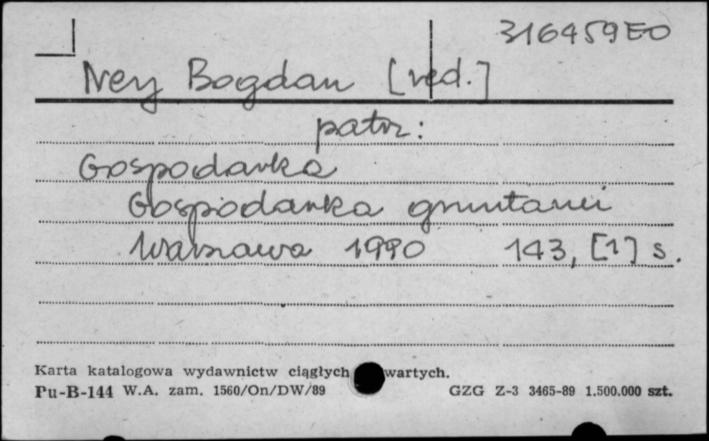 316459EO
Ney Bogdan [red.]
patrz:
Gospodarka
Gospodarka gruntami
Warszawa 1990 143, [1] s.
Karta katalogowa wydawnictw ciągłych wartych.
Pu-B-144 W.A. zam. 1560/On/DW/89 GZG Z-3 3465-89 1.500.000 szt.